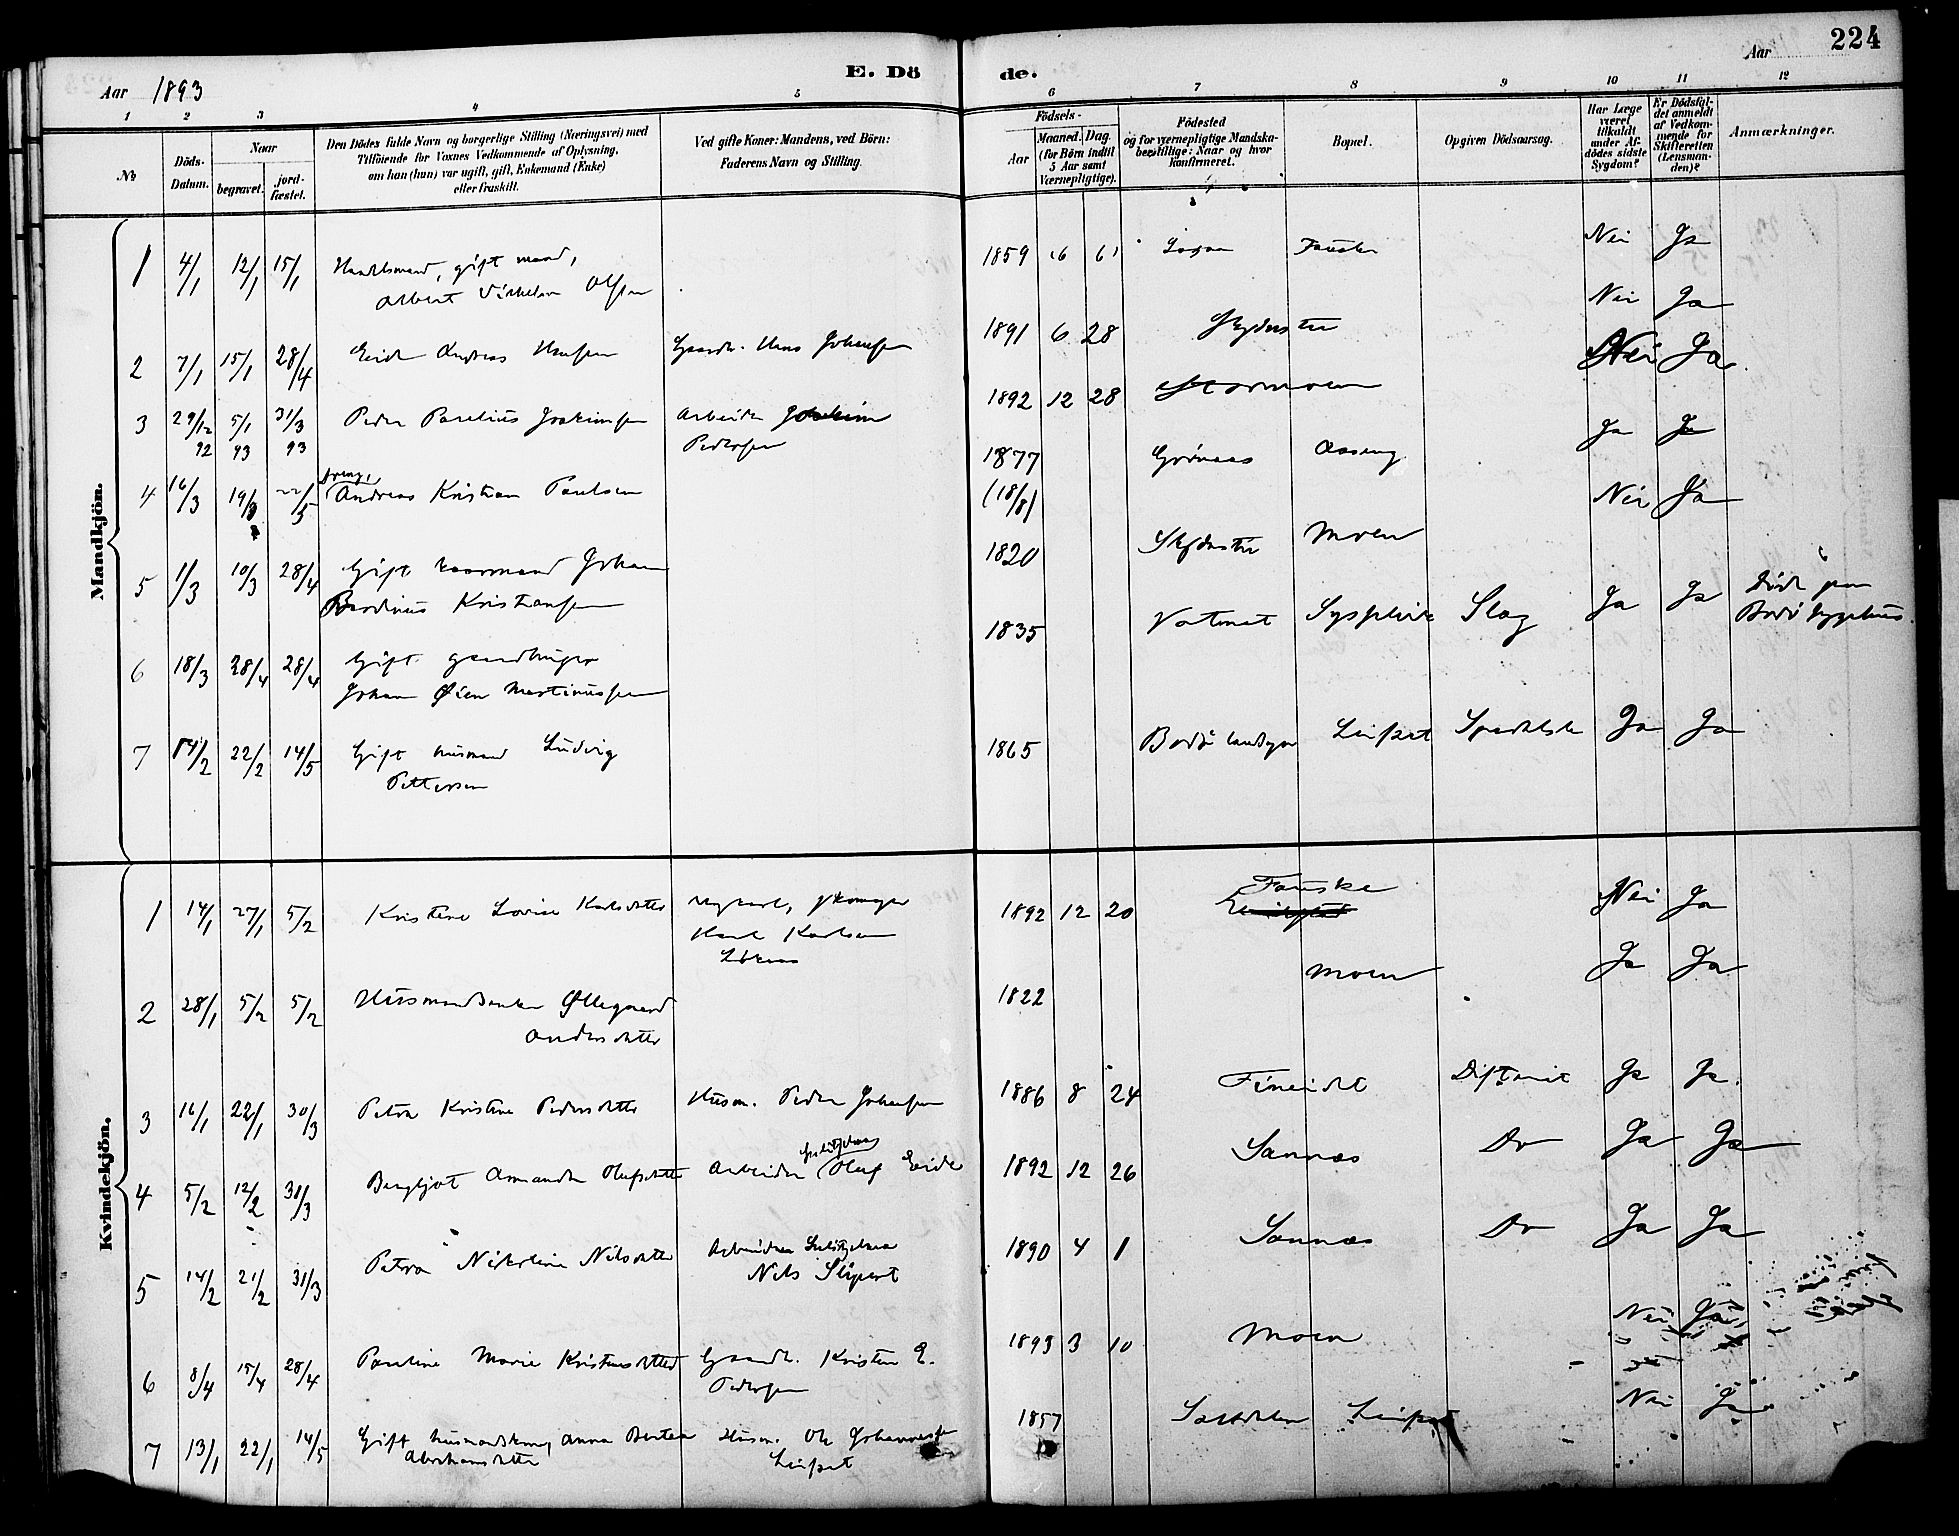 224
Aar 1893
E. Dö
de.
Aar
1 2 3 4 5 6 7 8 9 10 11 12
No
Döds-Datum.
Naar
begravet.
jord-fæstet.
Den Dödes fulde Navn og borgerlige Stilling (Næringsvei) med
Tilföiende for Voxnes Vedkommende af Oplysning,
om han (hun) var ugift, gift, Enkemand (Enke)
eller fraskilt.
Ved gifte Koner: Mandens, ved Börn:
Faderens Navn og Stilling.
Födsels-
Aar
Maaned. Dag.
(for Börn indtil
5 Aar samt
Værnepligtige).
Födested
og for værnepligtige Mandska-
bers tillige: Naar og hvor
konfirmeret.
Bopæl.
Opgiven Dödsaarsag.
Har Læge
været
tilkaldt
under Af-
dödes sidste
Sygdom?
Er Dödsfal-
det anmeldt
af Vedkom-
mende for
Skifteretten
(Lensman-
den)?
Anmærkninger.
Mandkjön.
1 4/1 12/1 15/1 Handelsmand, gift mand, 1859 6 6 Fauske Nei Ja
Albert Vilhelm Olsen
2 7/1 15/1 28/4 Andreas Hansen Gaardb. Hans Johansen 1891 6 28 Nei Ja
3 29/12 92 5/1 93 31/3 93 Peder Parelius Joakimsen Arbeider Joakim 1892 12 28 Stormoen Nei Ja
Pedersen
4 16/3 19/3 22/5 Andreas Kristian Paulsen 1877 Ja Ja
(18/8)
5 1/3 10/3 28/4 Gift kaarmand Johan 1820 Moen Nei Ja
Kristiansen
6 18/3 28/4 28/4 Gift gaardbruger 1835 Vatnet Slag Ja Ja Död paa
Johan Øien Martinussen Bodö sygehus
7 14/2 22/2 14/5 Gift husmand Ludvig 1865 Bodö landsogn Leifset Spedalsk Ja Ja
Pettersen
Kvindekjön.
1 14/1 27/1 5/2 Kristine Lovise Karlsdatter 1892 12 20 Fauske Nei Ja
Karl Karlsen
2 28/1 5/2 5/2 Husmandsenke Øllegaard 1822 Moen Ja Ja
Andersdatter
3 16/1 22/1 30/3 Petra Kristine Pedersdatter Husm. Peder Johansen 1886 8 24 Fineidet Difterit Ja Ja
4 5/2 12/2 31/3 Bergljot Amanda Olufsdatter Arbeider Oluf Eide 1892 12 26 Sannæs Do Ja Ja
5 14/2 21/2 31/3 Petra Nikoline Nilsdatter Arbeider Sulitjelma 1890 4 1 Sannæs Do Ja Ja
Nils
6 8/4 15/4 28/4 Pauline Marie Kristensdatter Gaardb. Kristen E. 1893 3 10 Moen Nei Ja
Pedersen
7 13/1 22/1 14/5 Gift husmandskone, Anna Husm. Ole Johannessen 1857 Saltdalen Leifset Nei Ja
Abrahamsdatter Leifset